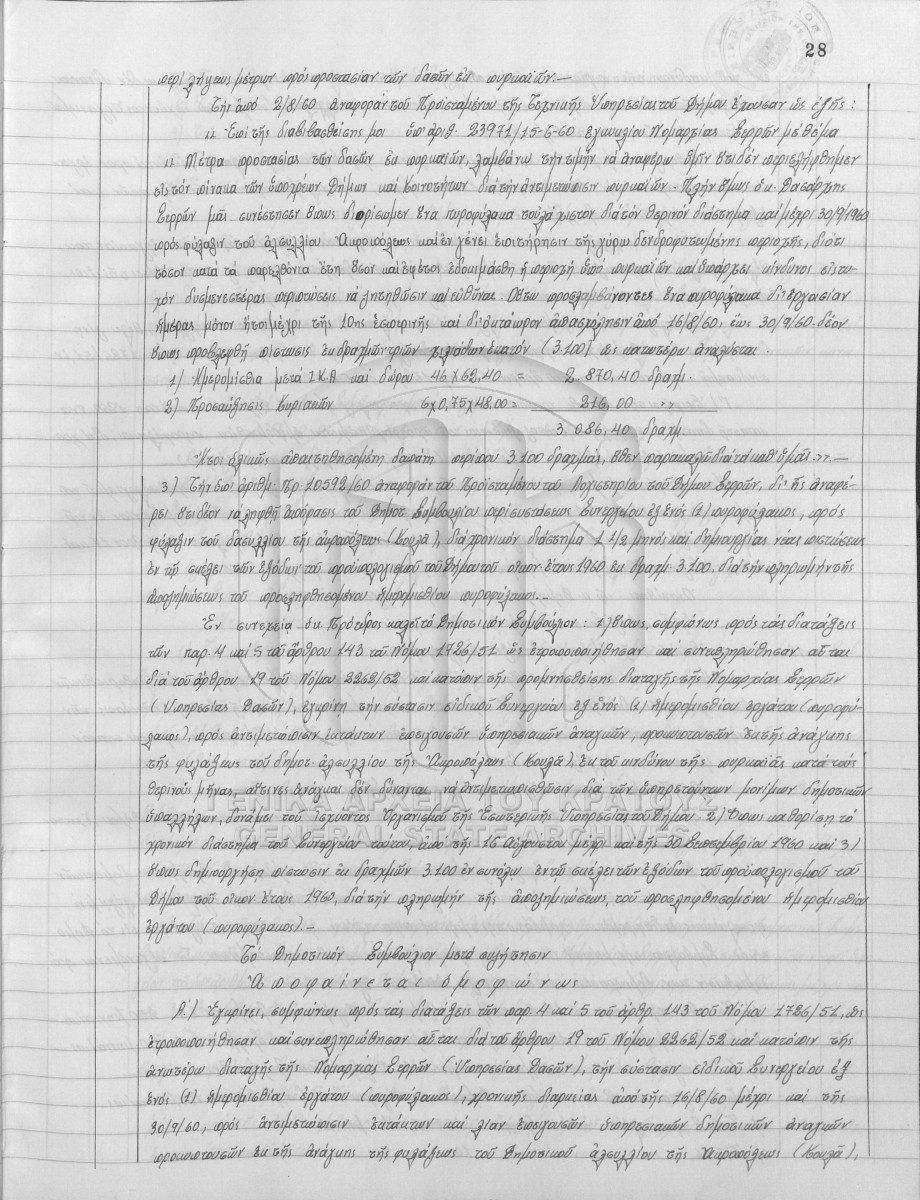 28
περί λήψεως μέτρων πρός προστασίαν τῶν δασῶν ἐκ πυρκαϊῶν.—
Τήν ἀπό 2/8/60 ἀναφοράν τοῦ Προϊσταμένου τῆς Τεχνικῆς Ὑπηρεσίας τοῦ Δήμου ἔχουσαν ὡς ἑξῆς :
,, Ἐπί τῆς διαβιβασθείσης μοι ὑπ' ἀριθ. 23971/15-6-60 ἐγκυκλίου Νομαρχίας Σερρῶν μέ θέμα
,, Μέτρα προστασίας τῶν δασῶν ἐκ πυρκαϊῶν, λαμβάνω τήν τιμήν νά ἀναφέρω ὑμῖν ὅτι δέν περιελήφθημεν
εἰς τόν πίνακα τῶν ὑποχρέων Δήμων καί Κοινοτήτων διά τήν ἀντιμετώπισιν πυρκαϊῶν. Πλήν ὅμως ὁ κ. Δασάρχης
Σερρῶν μᾶς συνέστησεν ὅπως διορίσωμεν ἕνα πυροφύλακα τοὐλάχιστον διά τόν θερινόν διάστημα καί μέχρι 30/9/1960
πρός φύλαξιν τοῦ ἀλσυλλίου Ἀκροπόλεως καί ἐν γένει ἐπιτήρησιν τῆς γύρω δενδροφυτωμένης περιοχῆς, διότι
τόσον κατά τά παρελθόντα ἔτη ὅσον καί ἐφέτος ἐδοκιμάσθη ἡ περιοχή ὑπό πυρκαϊῶν καί ὑπάρχει κίνδυνος εἰς τυ-
χόν δυσμενεστέρας περιπτώσεις νά ζητηθῶσιν καί εὐθῦναι. Οὕτω προσλαμβάνοντες ἕνα πυροφύλακα δι' ἐργασίαν
ἡμέρας μόνον ἤτοι μέχρι τῆς 10ης ἑσπερινῆς καί δι' ὀκτάωρον ἀπασχόλησιν ἀπό 16/8/60, ἕως 30/9/60 δέον
ὅπως προβλεφθῇ πίστωσις ἐκ δραχμῶν τριῶν χιλιάδων ἑκατόν (3.100) ὡς κατωτέρω ἀναλύεται.
1) Ἡμερομίσθια μετά Ι.Κ.Α καί δώρου 46 χ 62,40 = 2.870,40 δραχμ.
2) Προσαύξησις Κυριακῶν 6χ0,75χ48.00= 216,00 ,,
3.086,40 δραχμ
Ἤτοι ὁλικῶς ἀπαιτηθησομένη δαπάνη περίπου 3.100 δραχμάς, ὅθεν παρακαλῶ διά τά καθ' ὑμᾶς.,,.—
3) Τήν ὑπ' ἀριθμ. πρ. 10592/60 ἀναφοράν τοῦ Προϊσταμένου τοῦ Λογιστηρίου τοῦ Δήμου Σερρῶν, δι' ἧς ἀναφέ-
ρει ὅτι δέον νά ληφθῇ ἀπόφασις τοῦ Δημοτ. Συμβουλίου περί συστάσεως Συνεργείου ἐξ ἑνός (1) πυροφύλακος, πρός
φύλαξιν τοῦ δασυλλίου τῆς ἀκροπόλεως (Κουλᾶ), διά χρονικόν διάστημα 1 1/2 μηνός καί δημιουργίας νέας πιστώσεως
ἐν τῷ σκέλει τῶν ἐξόδων τοῦ προϋπολογισμοῦ τοῦ Δήμου τοῦ οἰκον. ἔτους 1960 ἐκ δραχμ. 3.100, διά τήν πληρωμήν τῆς
ἀποζημιώσεως τοῦ προσληφθησομένου ἡμερομισθίου πυροφύλακος.—
Ἐν συνεχείᾳ ὁ κ. Πρόεδρος καλεῖ τό Δημοτικόν Συμβούλιον : 1) Ὅπως, συμφώνως πρός τάς διατάξεις
τῶν παρ. 4 καί 5 τοῦ ἄρθρου 143 τοῦ Νόμου 1726/51 ὡς ἐτροποποιήθησαν καί συνεπληρώθησαν αὗται
διά τοῦ ἄρθρου 19 τοῦ Νόμου 2262/52 καί κατόπιν τῆς προμνησθείσης διαταγῆς τῆς Νομαρχίας Σερρῶν
(Ὑπηρεσίας Δασῶν), ἐγκρίνῃ τήν σύστασιν εἰδικοῦ Συνεργείου ἐξ ἑνός (1) ἡμερομισθίου ἐργάτου (πυροφύ-
λακος), πρός ἀντιμετώπισιν ἐκτάκτων ἐπειγουσῶν ὑπηρεσιακῶν ἀναγκῶν, προκυπτουσῶν ἐκ τῆς ἀνάγκης
τῆς φυλάξεως τοῦ δημοτ. ἀλσυλλίου τῆς Ἀκροπόλεως (Κουλᾶ), ἐκ τοῦ κινδύνου τῆς πυρκαϊᾶς κατά τούς
θερινούς μῆνας, αἵτινες ἀνάγκαι δέν δύνανται νά ἀντιμετωπισθῶσιν διά τῶν ὑπηρετούντων μονίμων δημοτικῶν
ὑπαλλήλων, δυνάμει τοῦ ἰσχύοντος Ὀργανισμοῦ τῆς Ἐσωτερικῆς Ὑπηρεσίας τοῦ Δήμου 2) Ὅπως καθορίσῃ τό
χρονικόν διάστημα τοῦ Συνεργείου τούτου, ἀπό τῆς 16 Αὐγούστου μέχρι καί τῆς 30 Σεπτεμβρίου 1960 καί 3)
ὅπως δημιουργήσῃ πίστωσιν ἐκ δραχμῶν 3.100 ἐν συνόλῳ ἐν τῷ σκέλει τῶν ἐξόδων τοῦ προϋπολογισμοῦ τοῦ
Δήμου τοῦ οἰκον. ἔτους 1960, διά τήν πληρωμήν τῆς ἀποζημιώσεως, τοῦ προσληφθησομένου ἡμερομισθίου
ἐργάτου (πυροφύλακος).—
Τό Δημοτικόν Συμβούλιον μετά συζήτησιν
Ἀποφαίνεται ὁμοφώνως
Α.) Ἐγκρίνει, συμφώνως πρός τάς διατάξεις τῶν παρ. 4 καί 5 τοῦ ἄρθρ. 143 τοῦ Νόμου 1726/51, ὡς
ἐτροποποιήθησαν καί συνεπληρώθησαν αὗται διά τοῦ ἄρθρου 19 τοῦ Νόμου 2262/52 καί κατόπιν τῆς
ἀνωτέρω διαταγῆς τῆς Νομαρχίας Σερρῶν (Ὑπηρεσίας Δασῶν), τήν σύστασιν εἰδικοῦ Συνεργείου ἐξ
ἑνός (1) ἡμερομισθίου ἐργάτου (πυροφύλακος), χρονικῆς διαρκείας ἀπό τῆς 16/8/60 μέχρι καί τῆς
30/9/60, πρός ἀντιμετώπισιν ἐκτάκτων καί λίαν ἐπειγουσῶν ὑπηρεσιακῶν δημοτικῶν ἀναγκῶν
προκυπτουσῶν ἐκ τῆς ἀνάγκης τῆς φυλάξεως τοῦ Δημοτικοῦ ἀλσυλλίου τῆς Ἀκροπόλεως (Κουλᾶ),
ΓΕΝΙΚΑ ΑΡΧΕΙΑ ΤΟΥ ΚΡΑΤΟΥΣ
GENERAL STATE ARCHIVES